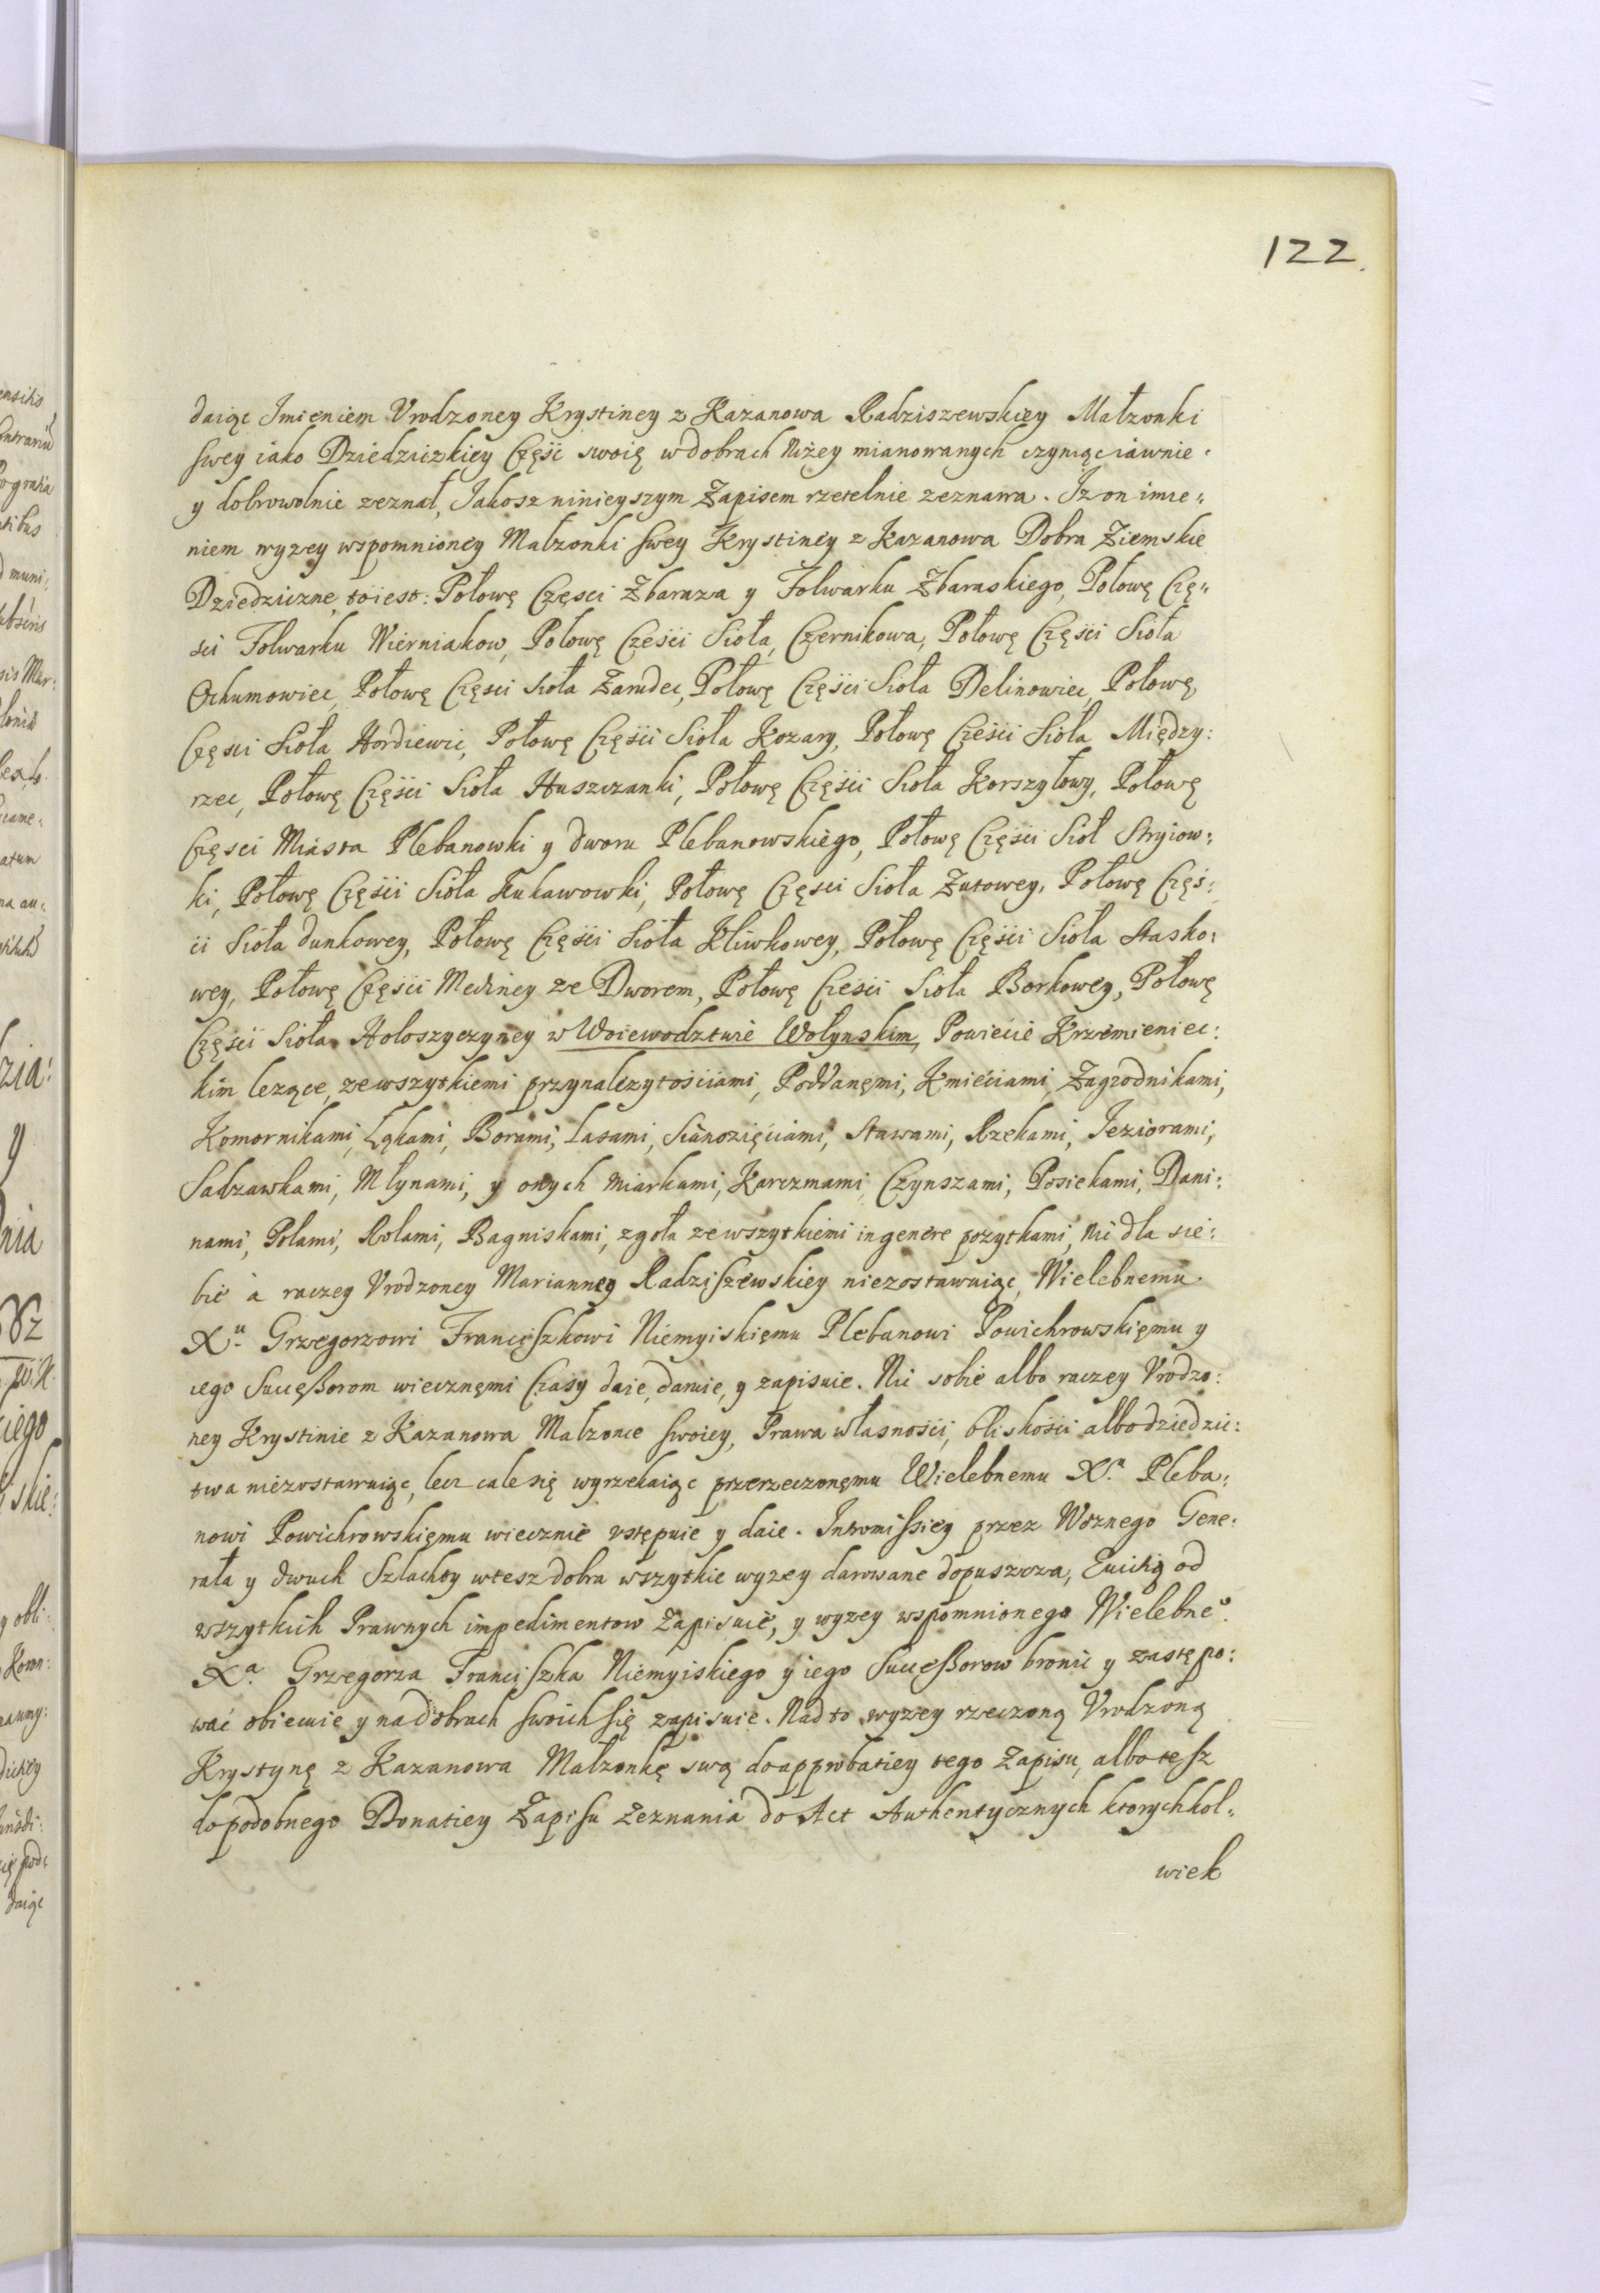 122.
daiąc Imieniem Vrodzoney Krystiney z Kazanowa Radziszewskiey Małzonki
swey iako Dziedziczkiey Część swoię w dobrach Niżey mianowanych czyniąc iawnie.
y dobrowolnie zeznał, Jakosz ninieyszym Zapisem rzetelnie zeznawa. Iz on imie„
niem wyzey wspomnioney Malzonki swey Krystiney z Kazanowa Dobra Ziemskie
Dziedziczne, toiest: Połowę Częsci Zbaraza y Folwarku Zbaraskiego, Połowę Czę„
sci Folwarku Wierniakow, Połowę Części Sioła, Czernikowa, Połowę Części Sioła
Ochumowiec, Połowę Częsci sioła Zarudec, Połowę Części Sioła Delinowiec, Połowę,
Częsci Sioła Hordiewic, Połowę Części Sioła Kozary, Połowę Cześci Sioła Między:
rzec, Połowę Części Sioła Huszczanki, Połowę Części Sioła Korszyłowy, Połowę
Częsci Miasta Plebanowki y dworu Plebanowskiego, Połowę Części Siół Stryiow:
ki, Połowę Części Sioła Kukawowki, Połowę Częsci Sioła Zutowey, Połowę Częś:
ci Sioła dunkowey, Połowę Części Sioła Kliwkowey, Połowę Części Sioła Stasko:
wey, Połowę Części Mediney ze Dworem, Połowę Cześci Sioła Borkowey, Połowę
Części Sioła Hołoszyczyney w Woiewodztwie Wołynskim, Powiecie Krzemieniec:
kim lezące, zewszytkiemi przynalezytościami, Poddanęmi, Kmieciami, Zagrodnikami,
Komornikami, Łąkami, Borami, Lasami, Sianozięciami, Stawami, Rzekami, Jeziorami,
Sadzawkami, Młynami, y onych miarkami, Karczmami, Czynszami, Posiekami, Dani:
nami, Polami, Rolami, Bagniskami, zgoła zewszytkiemi in genere pozytkami, Nic dla sie:
bie à raczey Vrodzoney Marianney Radziszewskiey niezostawuiąc, Wielebnemu
Xu. Grzegorzowi Franciszkowi Niemyiskięmu Plebanowi Powichrowskięmu y
iego Succęßorom wiecznęmi Czasy daie, daruie, y zapisuie. Nic sobie albo raczey Vrodzo:
ney Krystinie z Kazanowa Malzonce swoiey, Prawa własności, bliskości albo dziedzic:
twa niezostawuiąc, lecz cale się wyrzekaiąc przerzeczonęmu Wielebnemu Xu. Pleba:
nowi Powichrowskięmu wiecznie vstępuie y daie. Intromissiey przez Woznego Gene:
rała y dwuch Szlachty wtesz dobra wszytkie wyzey darowane dopuszcza, Ewictią od
wszytkich Prawnych impedimentow Zapisuie, y wyzey wspomnionego Wielebneo.
Xa. Grzegorza Franciszka Niemyiskiego y iego Succęßorow bronić y zastępo:
wać obiecuie y na dobrach swoich się zapisuie. Nad to wyzey rzeczoną Vrodzoną
Krystynę z Kazanowa Malzonkę swą do approbatiey tego Zapisu, albo tesz
do podobnego Donatiey Zapisu Zeznania do Act Authentycznych ktorychkol„
wiek